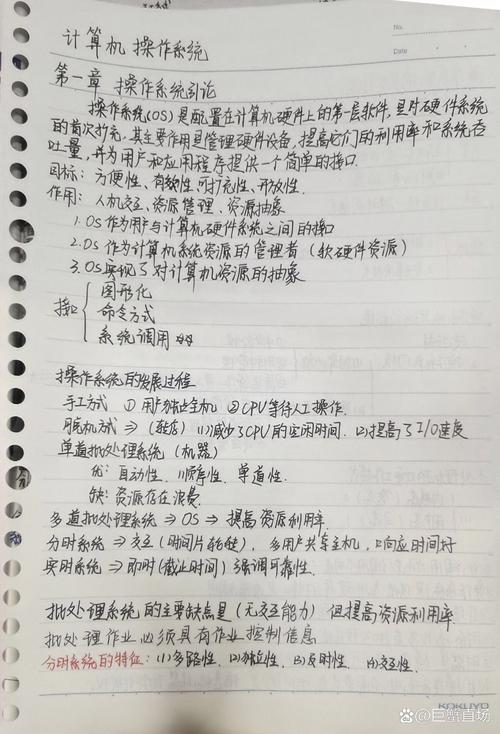 No.
Date
计算机 操作系统
第一章 操作系统引论
操作系统(OS)是配置在计算机硬件上的第一层软件,是对硬件系统
的首次扩充,其主要作用是管理硬件设备,提高它们的利用率和系统吞
吐量,并为用户和应用程序提供一个简单的接口.
目标:方便性、有效性、可扩充性、开放性.
作用:人机交互、资源管理、资源抽象
1.OS作为用户与计算机硬件系统之间的接口
2.OS作为计算机系统资源的管理者(软硬件资源)
3.OS实现了对计算机资源的抽象
接口 { 图形化
命令方式
系统调用
操作系统的发展过程
手工方式 ①用户独占全机 ②CPU等待人工操作.
脱机方式⇒ (1)减少了CPU的空闲时间. (2)提高了I/O速度
单道批处理系统(机器)
优:自动性、顺序性、单道性.
缺:资源存在浪费.
多道批处理系统⇒OS⇒提高资源利用率.
分时系统⇒交互(时间片轮转),多用户共享主机,响应时间好
实时系统⇒即时(截止时间)强调可靠性.
批处理系统的主要缺点是(无交互能力)但提高资源利用率
批处理作业必须具有作业控制信息
分时系统的特征:(1)多路性. (2)独立性. (3)及时性. (4)交互性.
KOKUYO
@巨蟹直场